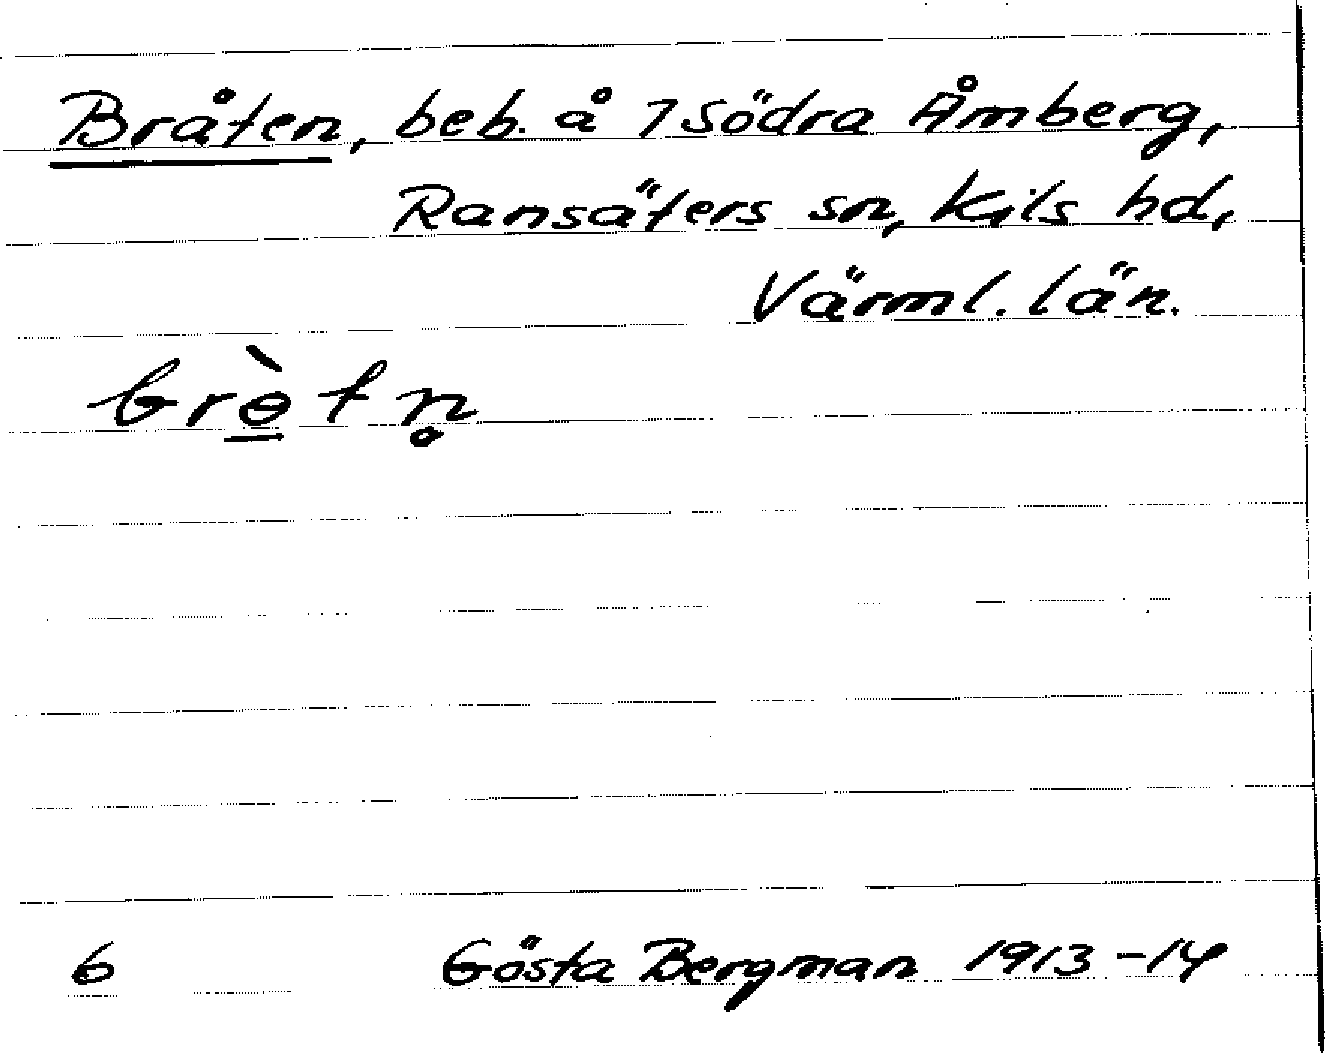 Bråten, beb. å 7 Södra Åmberg,
Ransäters sn, Kils hd,
Värml. län.
brὲtn̥
6 Gösta Bergman 1913-14